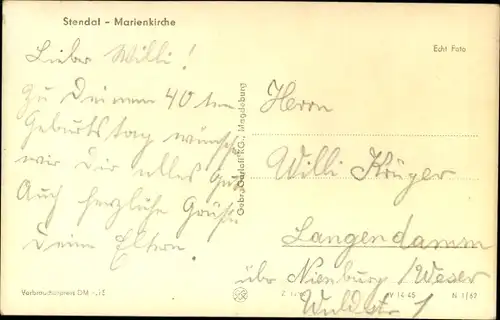 Stendal – Marienkirche
Lieber Willi!
Zu Deinem 40 ten
Geburtstag wünschen
wir Dir alles Gute
Auch herzliche Grüße
Deine Eltern.
Verbraucherpreis DM
Gebr. Garloff KG., Magdeburg
Echt Foto
Herrn
Willi Krüger
Langendamm
über Nienburg/Weser
1
V 14 45 N 1/62